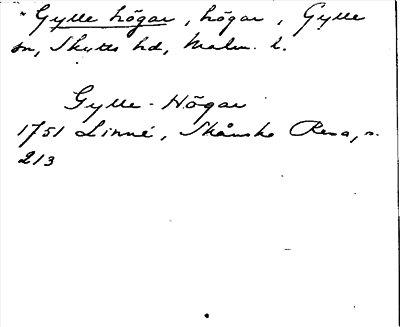 "Gylle högar, högar, Gylle
sn, Skytts hd, Malm. l.
Gylle-Högar
1751 Linné, Skånska Resa, s.
213